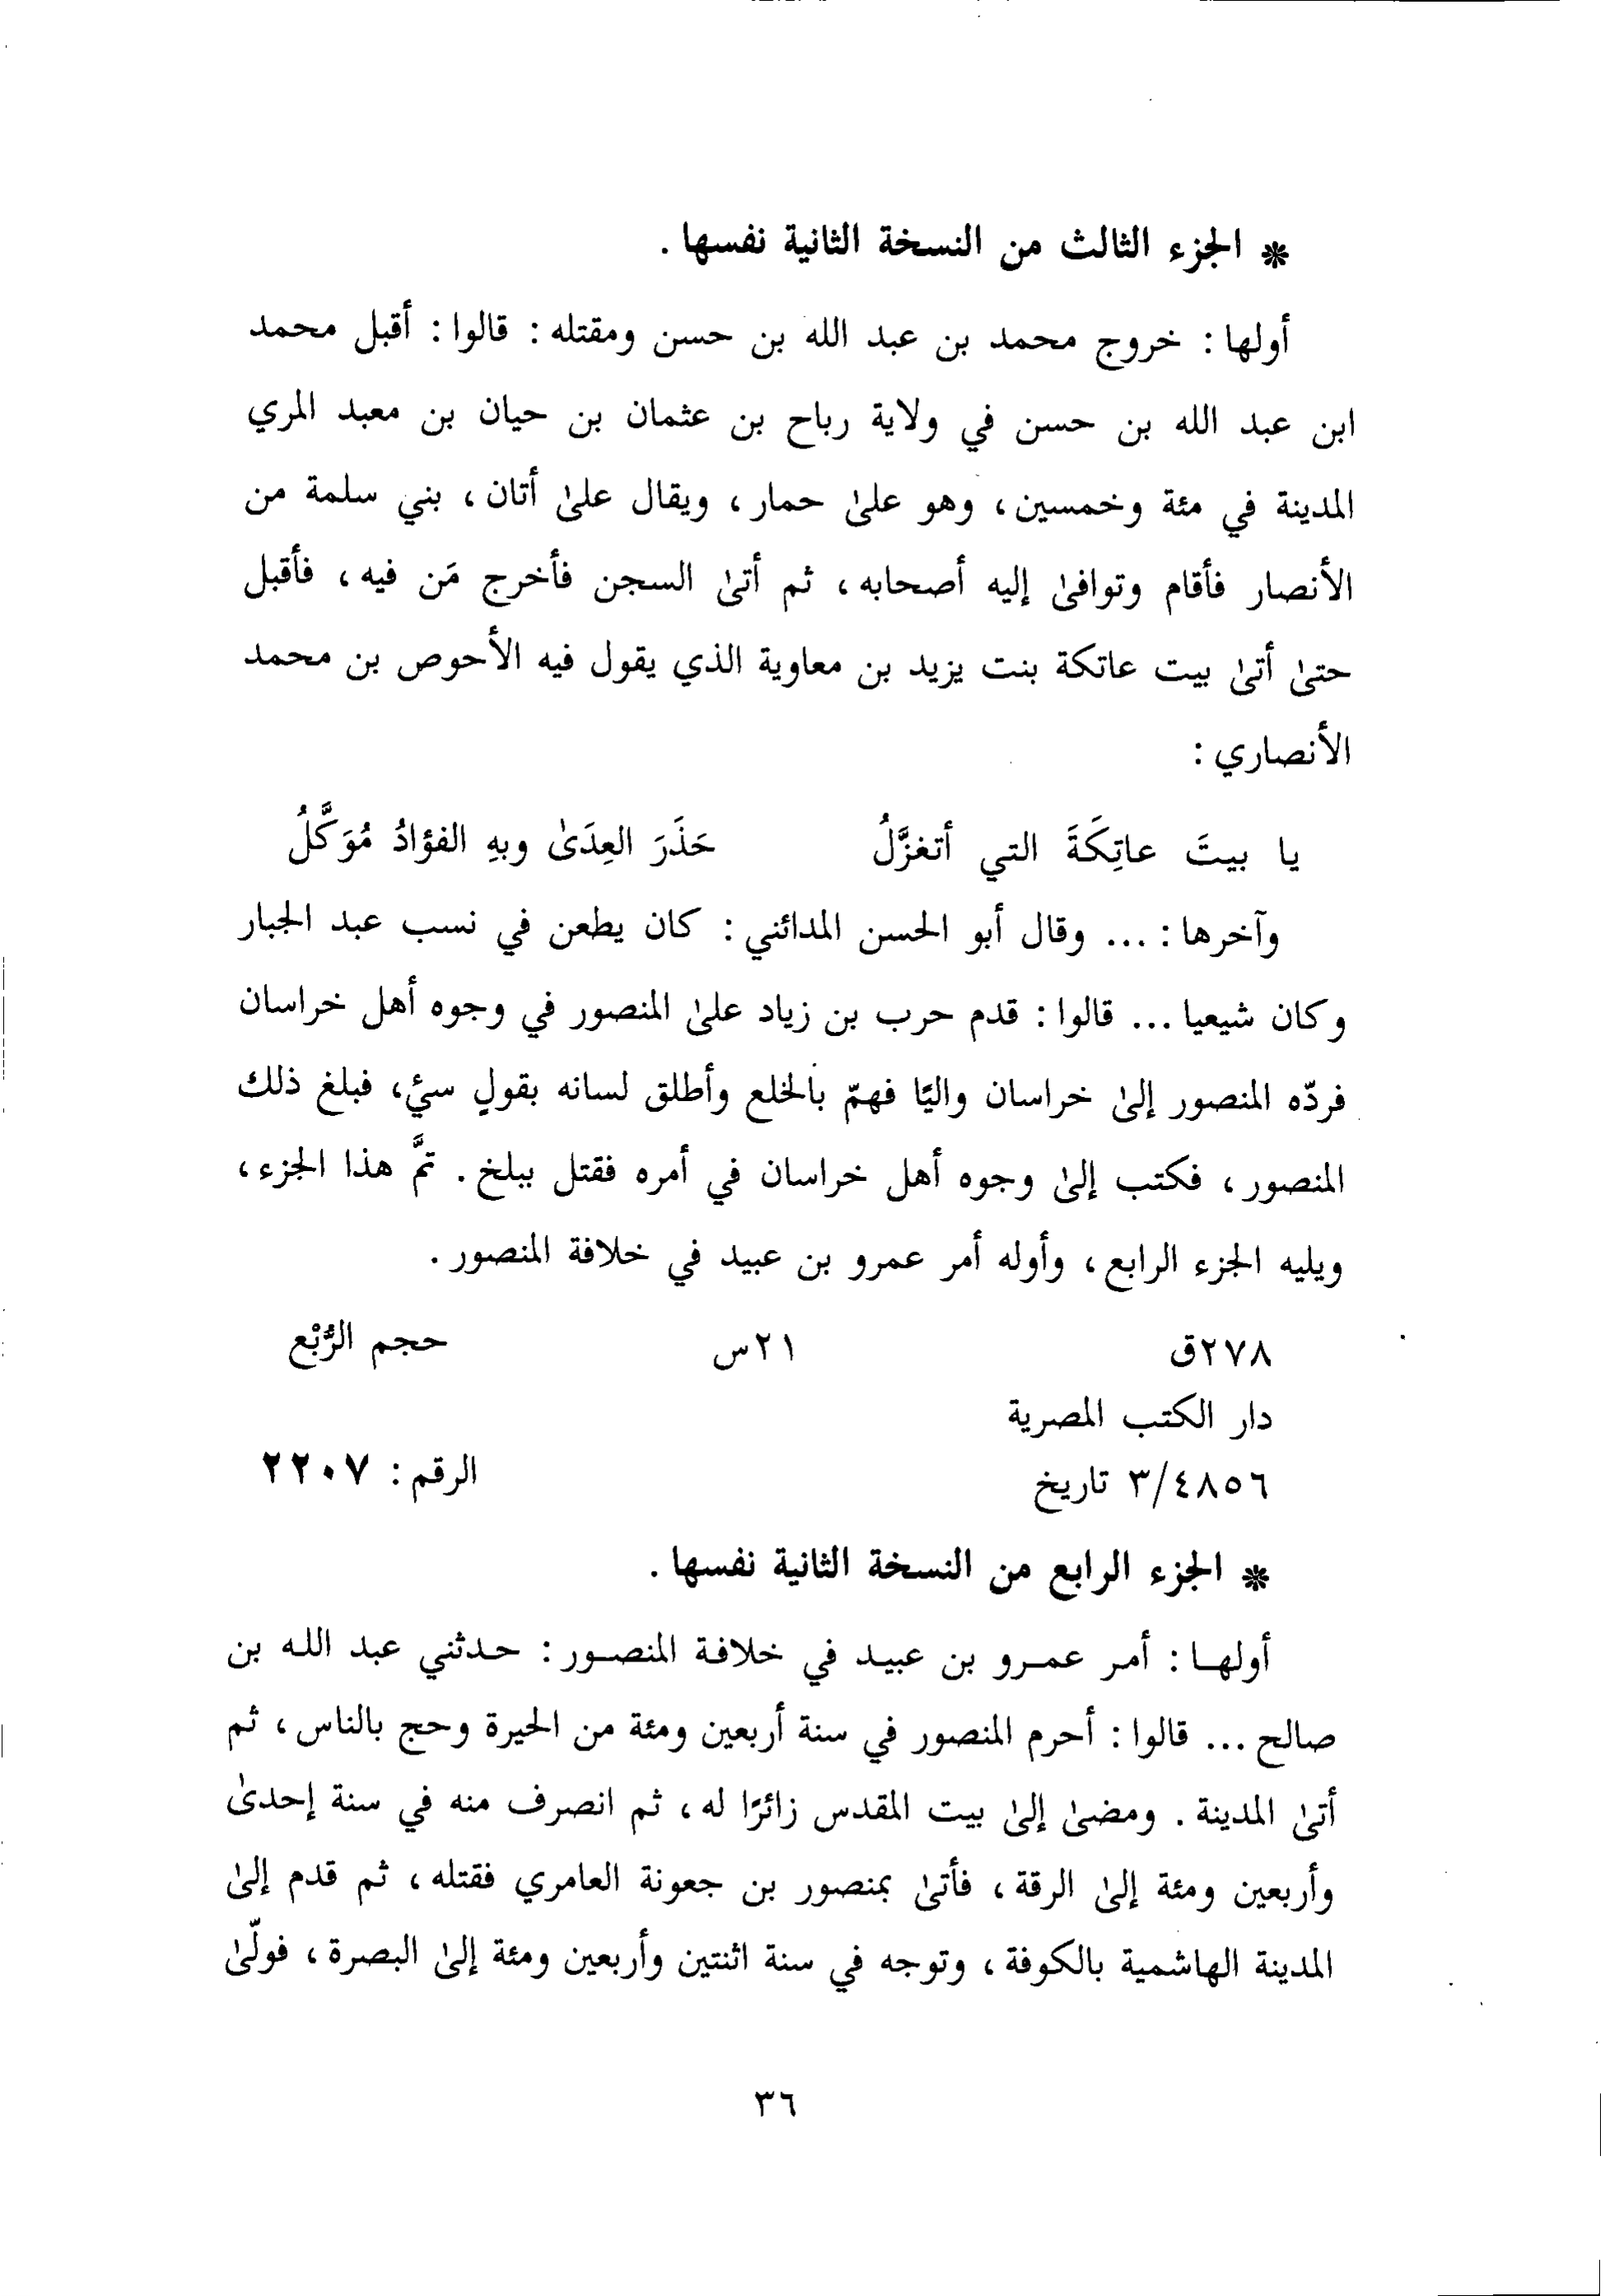 * الجزء الثالث من النسخة الثانية نفسها .
أولها : خروج محمد بن عبد الله بن حسن ومقتله : قالوا : أقبل محمد
ابن عبد الله بن حسن في ولاية رباح بن عثمان بن حيان بن معبد المري
المدينة في مئة وخمسين، وهو علىٰ حمار، ويقال علىٰ أتان، بني سلمة من
الأنصار فأقام وتوافىٰ إليه أصحابه، ثم أتىٰ السجن فأخرج مَن فيه، فأقبل
حتىٰ أتىٰ بيت عاتكة بنت يزيد بن معاوية الذي يقول فيه الأحوص بن محمد
الأنصاري :
يا بيتَ عاتِكَةَ التي أتغزَّلُ حَذَرَ العِدَىٰ وبهِ الفؤادُ مُوَكَّلُ
وآخرها : ... وقال أبو الحسن المدائني : كان يطعن في نسب عبد الجبار
وكان شيعيا ... قالوا : قدم حرب بن زياد علىٰ المنصور في وجوه أهل خراسان
فردّه المنصور إلىٰ خراسان واليًا فهمّ بالخلع وأطلق لسانه بقولٍ سيٍّء، فبلغ ذلك
المنصور، فكتب إلىٰ وجوه أهل خراسان في أمره فقتل ببلخ. تمَّ هذا الجزء،
ويليه الجزء الرابع، وأوله أمر عمرو بن عبيد في خلافة المنصور.
٢٧٨ق ٢١س حجم الرُّبْع
دار الكتب المصرية
٣/٤٨٥٦ تاريخ الرقم : ٢٢٠٧
* الجزء الرابع من النسخة الثانية نفسها .
أولهـا : أمر عمـرو بن عبيـد في خلافـة المنصـور : حـدثني عبد اللـه بن
صالح ... قالوا : أحرم المنصور في سنة أربعين ومئة من الحيرة وحج بالناس، ثم
أتىٰ المدينة . ومضىٰ إلىٰ بيت المقدس زائرًا له، ثم انصرف منه في سنة إحدىٰ
وأربعين ومئة إلىٰ الرقة، فأتىٰ بمنصور بن جعونة العامري فقتله، ثم قدم إلىٰ
المدينة الهاشمية بالكوفة، وتوجه في سنة اثنتين وأربعين ومئة إلىٰ البصرة، فولّىٰ
٣٦